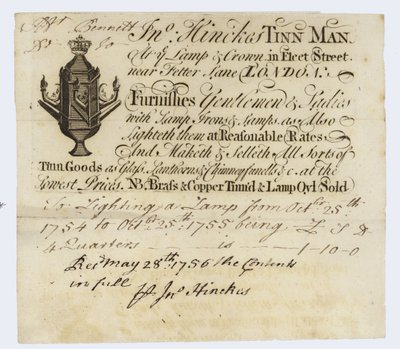 Bennett
Jnº. Hinckes TINN MAN.
At yͤ Lamp & Crown in Fleet Street
near Fetter Lane LONDON.
Furnishes Gentlemen & Ladies
with Lamp Irons & Lamps as Also
Lighteth them at Reasonable Rates
And Maketh & Selleth All Sorts of
Tinn Goods as Glass Lanthorns & Chimney funels &c. at the
Lowest Prices. NB. Brass & Copper Tinn'd & Lamp Oyl Sold
To Lighting a Lamp from Octbr 25th
1754 to Octbr 25th: 1755 being £ S d
4 Quarters is 1-10-0
Recd May 28th: 1756 the Contents
in full
Jnº Hinckes